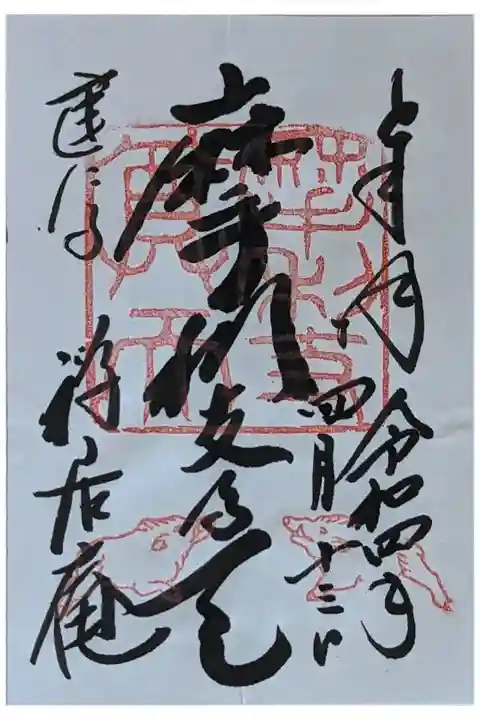 令和四年
四月十三日
摩利支尊天
建仁寺
禅居庵